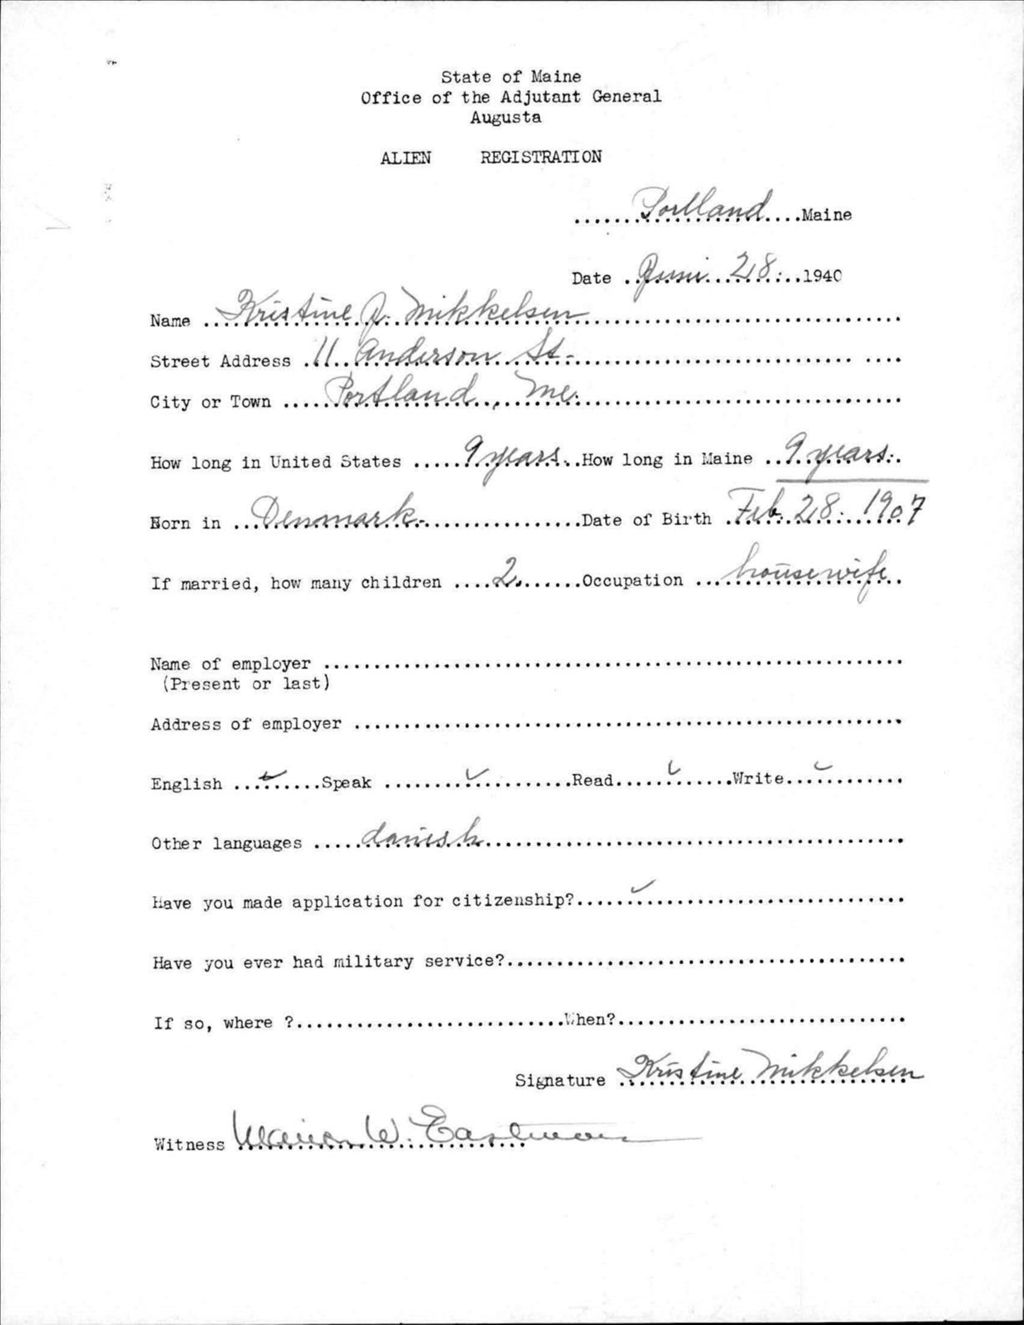 State of Maine
Office of the Adjutant General
Augusta
ALIEN REGISTRATION
.......Portland....Maine
Date ..Juni 28...1940
Name ...Kristine J. Mikkelsen..............................
Street Address .11 Anderson St-..............................
City or Town .....Portland, Me...............................
How long in United States .....9 years..How long in Maine ..9 years..
Born in ...Denmark.................Date of Birth .Feb. 28. 1907
If married, how many children ....2.......Occupation ...housewife..
Name of employer ..................................................
(Present or last)
Address of employer ..................................................
English ...✓.....Speak ........✓.........Read.....✓......Write...✓.........
Other languages .....danish........................................
Have you made application for citizenship?.....✓..........................
Have you ever had military service?.......................................
If so, where ?..........................When?............................
Signature .Kristine Mikkelsen
Witness Marion W. Eastman